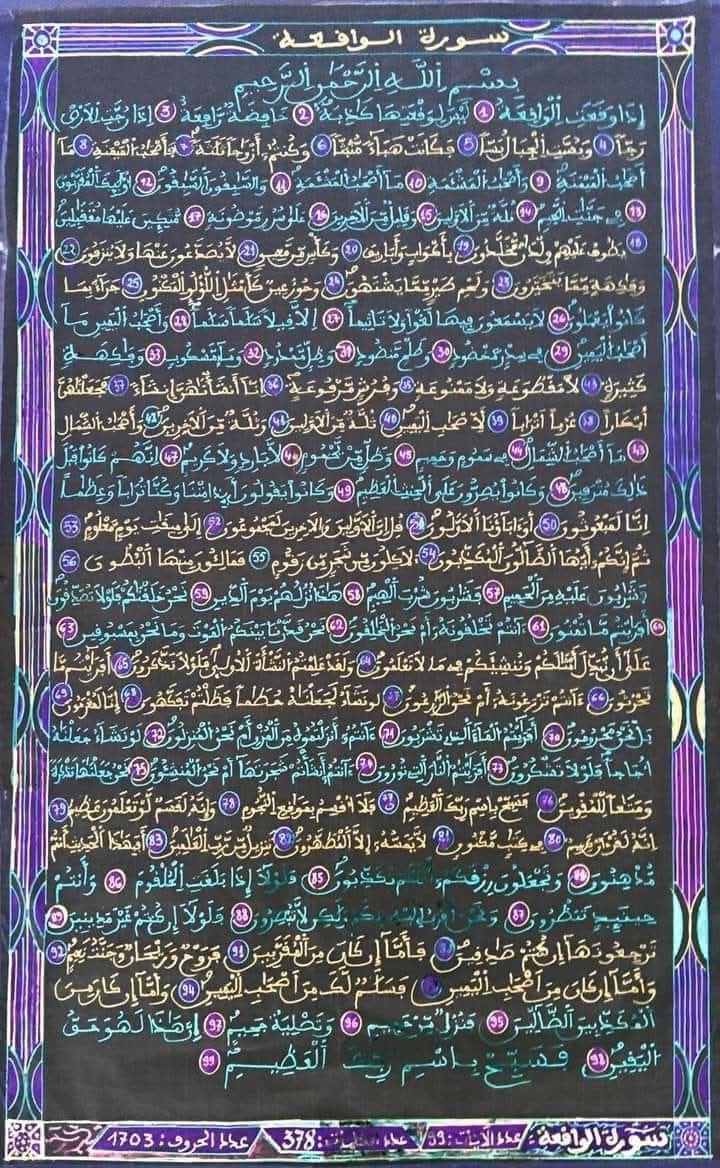 سورة الواقعة
بسم الله الرحمن الرحيم
إذا وقعت الواقعة 1 ليس لوقعتها كاذبة 2 خافضة رافعة 3 إذا رجت الارض
رجا 4 وبست الجبال بسا 5 فكانت هباء منبثا 6 وكنتم أزواجا ثلثة 7 فأصحب الميمنة 8 ما
أصحب الميمنة 9 وأصحب المشئمة 10 ما أصحب المشئمة 11 والسبقون السبقون 12 أولئك المقربون
13 في جنت النعيم 14 ثلة من الاولين 15 وقليل من الاخرين 16 على سرر موضونة 17 متكين عليها متقبلين
18 يطوف عليهم ولدن مخلدون 19 بأكواب وأباريق 20 وكأس من معين 21 لا يصدعون عنها ولا ينزفون 22
وفكهة مما يتخيرون 23 ولحم طير مما يشتهون 24 وحور عين كأمثل اللؤلو المكنون 25 جزاء بما
كانوا يعملون 26 لا يسمعون فيها لغوا ولا تأثيما 27 إلا قيلا سلما سلما 28 وأصحب اليمين ما
أصحب اليمين 29 في سدر مخضود 30 وطلح منضود 31 وظل ممدود 32 وماء مسكوب 33 وفكهة
كثيرة لا مقطوعة ولا ممنوعة 35 وفرش مرفوعة 36 إنا أنشأنهن إنشاء 37 فجعلنهن
أبكارا 38 عربا اترابا 39 لأصحب اليمين 40 ثلة من الاولين 41 وثلة من الاخرين 42 وأصحب الشمال
43 ما أصحب الشمال 44 في سموم وحميم 45 وظل من يحموم 46 لا بارد ولا كريم 47 إنهم كانوا قبل
ذلك مترفين 48 وكانوا يصرون على الحنث العظيم 49 وكانوا يقولون أيذا متنا وكنا ترابا وعظما
إنا لمبعوثون 50 أو اباؤنا الاولون قل ان الاولين والاخرين لمجموعون 52 إلى ميقت يوم معلوم 53
ثم إنكم أيها الضالون المكذبون 54 لأكلون من شجر من زقوم 55 فمالئون منها البطون 56
فشربون عليه من الحميم 57 فشربون شرب الهيم 58 هذا نزلهم يوم الدين 59 نحن خلقنكم فلولا تصدقون
60 أفرايتم ما تمنون 61 ءانتم تخلقونه أم نحن الخلقون 62 نحن قدرنا بينكم الموت وما نحن بمسبوقين 63
على أن نبدل أمثلكم وننشئكم في ما لا تعلمون 64 ولقد علمتم النشأة الاولى فلولا تذكرون 65 أفرايتم ما
تحرثون 66 ءانتم تزرعونه أم نحن الزرعون لو نشاء لجعلنه حطما فظلتم تفكهون 68 إنا لمغرمون 69
بل نحن محرومون 70 أفرايتم الماء الذي تشربون 71 ءانتم أنزلتموه من المزن أم نحن المنزلون 72 لو نشاء جعلنه
أجاجا فلولا تشكرون 73 أفرايتم النار التي تورون 74 ءانتم أنشأتم شجرتها أم نحن المنشئون 75 نحن جعلنها تذكرة
ومتعا للمقوين 76 فسبح باسم ربك العظيم فلا أقسم بموقع النجوم 78 وإنه لقسم لو تعلمون عظيم 79
إنه لقرءان كريم 80 في كتب مكنون 81 لا يمسه إلا المطهرون 82 تنزيل من رب العلمين 83 أفبهذا الحديث أنتم
مدهنون 84 وتجعلون رزقكم أنكم تكذبون 85 فلولا إذا بلغت الحلقوم 86 وأنتم
حينئذ تنظرون 87 ونحن أقرب إليه منكم ولكن لا تبصرون 88 فلولا إن كنتم غير مدينين 89
ترجعونها إن كنتم صدقين فأما إن كان من المقربين 91 فروح وريحان وجنت نعيم 92
وأما إن كان من أصحب اليمين فسلم لك من أصحب اليمين 94 وأما إن كان من
المكذبين الضالين 95 فنزل من حميم 96 وتصلية جحيم 97 إن هذا لهو حق
اليقين 98 فسبح باسم ربك العظيم 99
سورة الواقعة عدد الآيات: 99 عدد الكلمات: 378 عدد الحروف: 1703